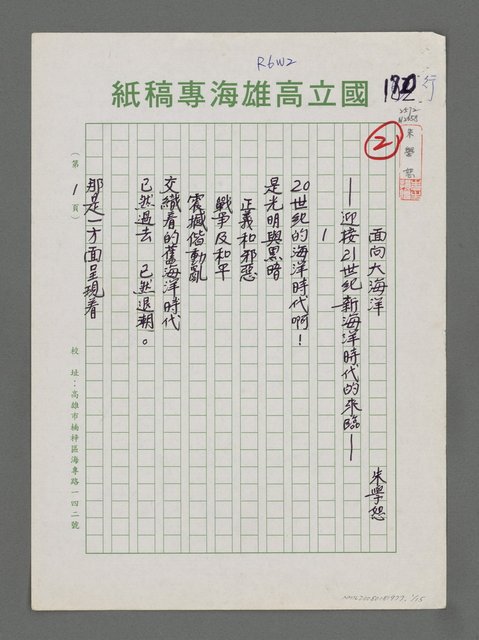 R6W2
國立高雄海專稿紙
行
2
朱學恕
面向大海洋
——迎接21世紀新海洋時代的來臨——
朱學恕
1
20世紀的海洋時代啊！
是光明與黑暗
正義和邪惡
戰爭及和平
震撼偕動亂
交織着的舊海洋時代
已然過去 已然退潮。
那是一方面呈現着
（第 1 頁）
校 址：高雄市楠梓區海專路一四二號